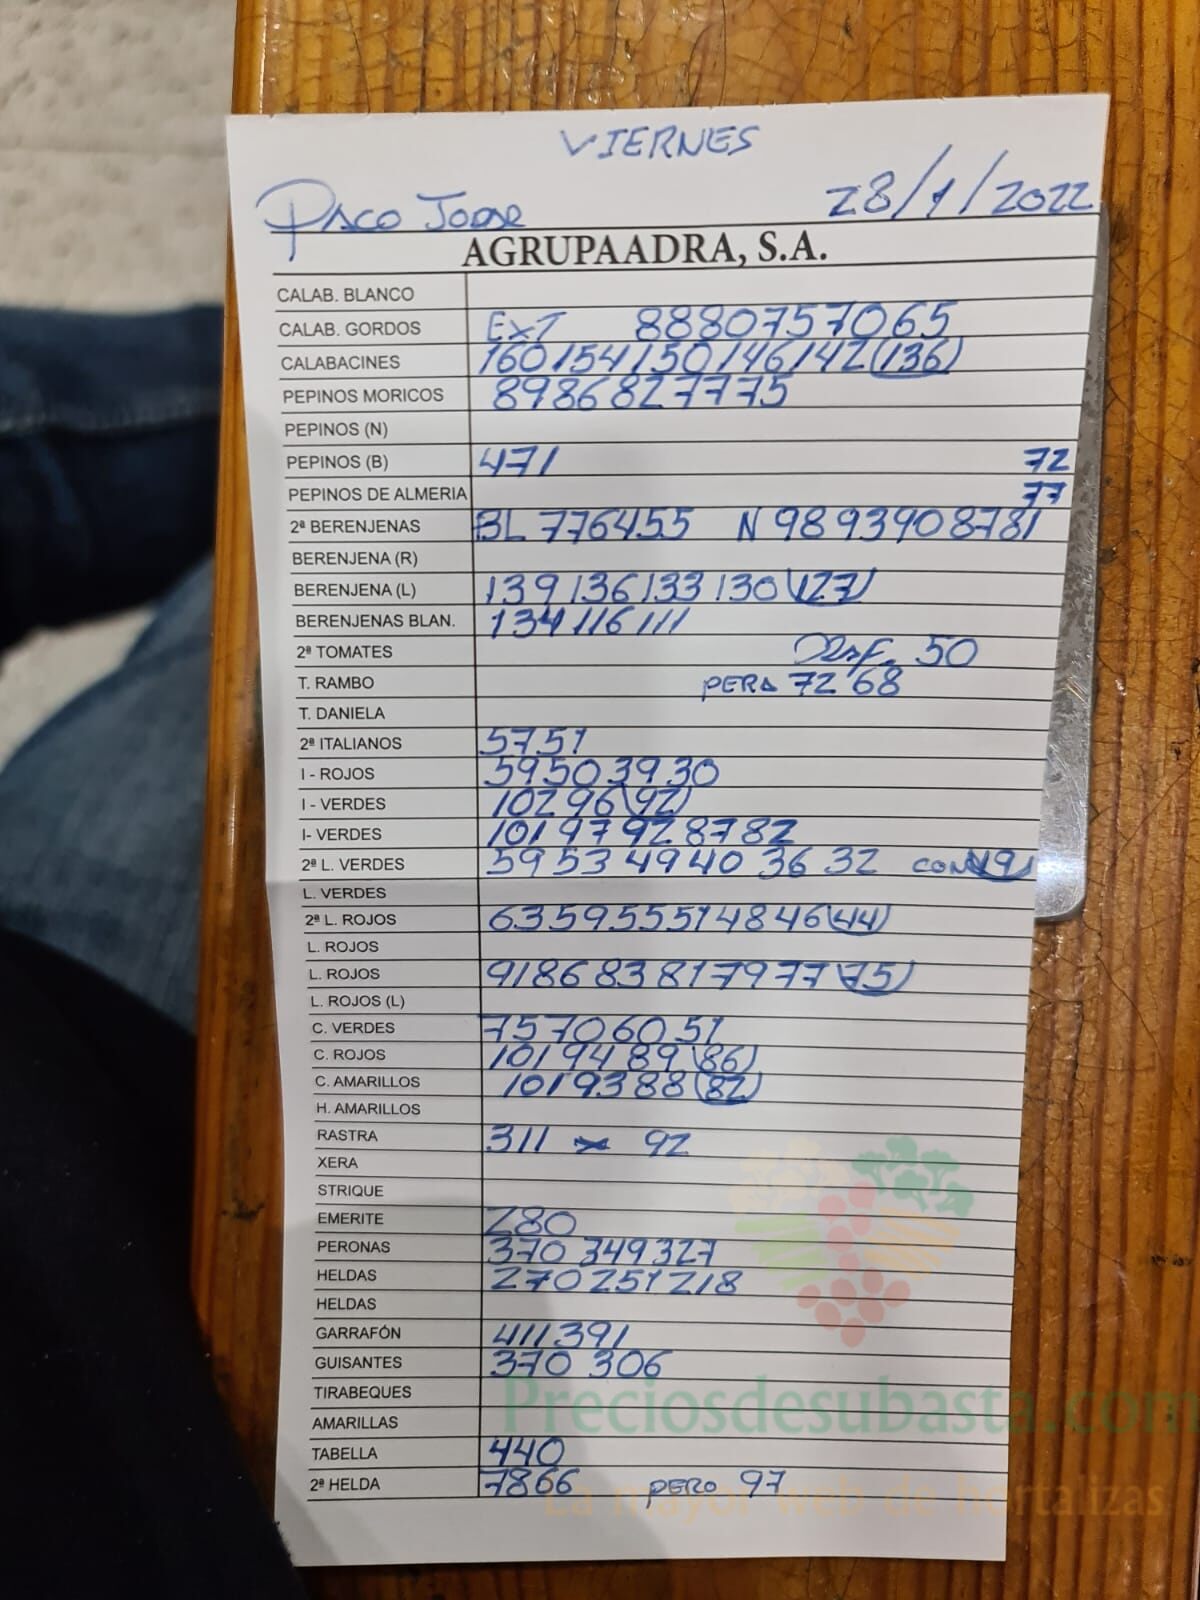 VIERNES
PACO JOSE 28/1/2022
AGRUPAADRA, S.A.
CALAB. BLANCO
CALAB. GORDOS EXT 88 80 75 70 65
CALABACINES 160 154 150 146 142 (136)
PEPINOS MORICOS 89 86 82 77 75
PEPINOS (N)
PEPINOS (B) 471 72
PEPINOS DE ALMERIA 77
2ª BERENJENAS BL 77 64 55 N 98 93 90 87 81
BERENJENA (R)
BERENJENA (L) 139 136 133 130 (127)
BERENJENAS BLAN. 134 116 111
2ª TOMATES 50
T. RAMBO PERA 72 68
T. DANIELA
2ª ITALIANOS 57 51
I - ROJOS 59 50 39 30
I - VERDES 102 96 (92)
I- VERDES 101 97 92 87 82
2ª L. VERDES 59 53 49 40 36 32
L. VERDES
2ª L. ROJOS 63 59 55 51 48 46 (44)
L. ROJOS
L. ROJOS 91 86 83 81 79 77 (75)
L. ROJOS (L)
C. VERDES 75 70 60 51
C. ROJOS 101 94 89 (86)
C. AMARILLOS 101 93 88 (82)
H. AMARILLOS
RASTRA 311 92
XERA
STRIQUE
EMERITE 280
PERONAS 370 349 327
HELDAS 270 251 218
HELDAS
GARRAFÓN 411 391
GUISANTES 370 306
TIRABEQUES
AMARILLAS
TABELLA 440
2ª HELDA 78 66 PERO 97
Preciosdesubasta.com
La mayor web de hortalizas